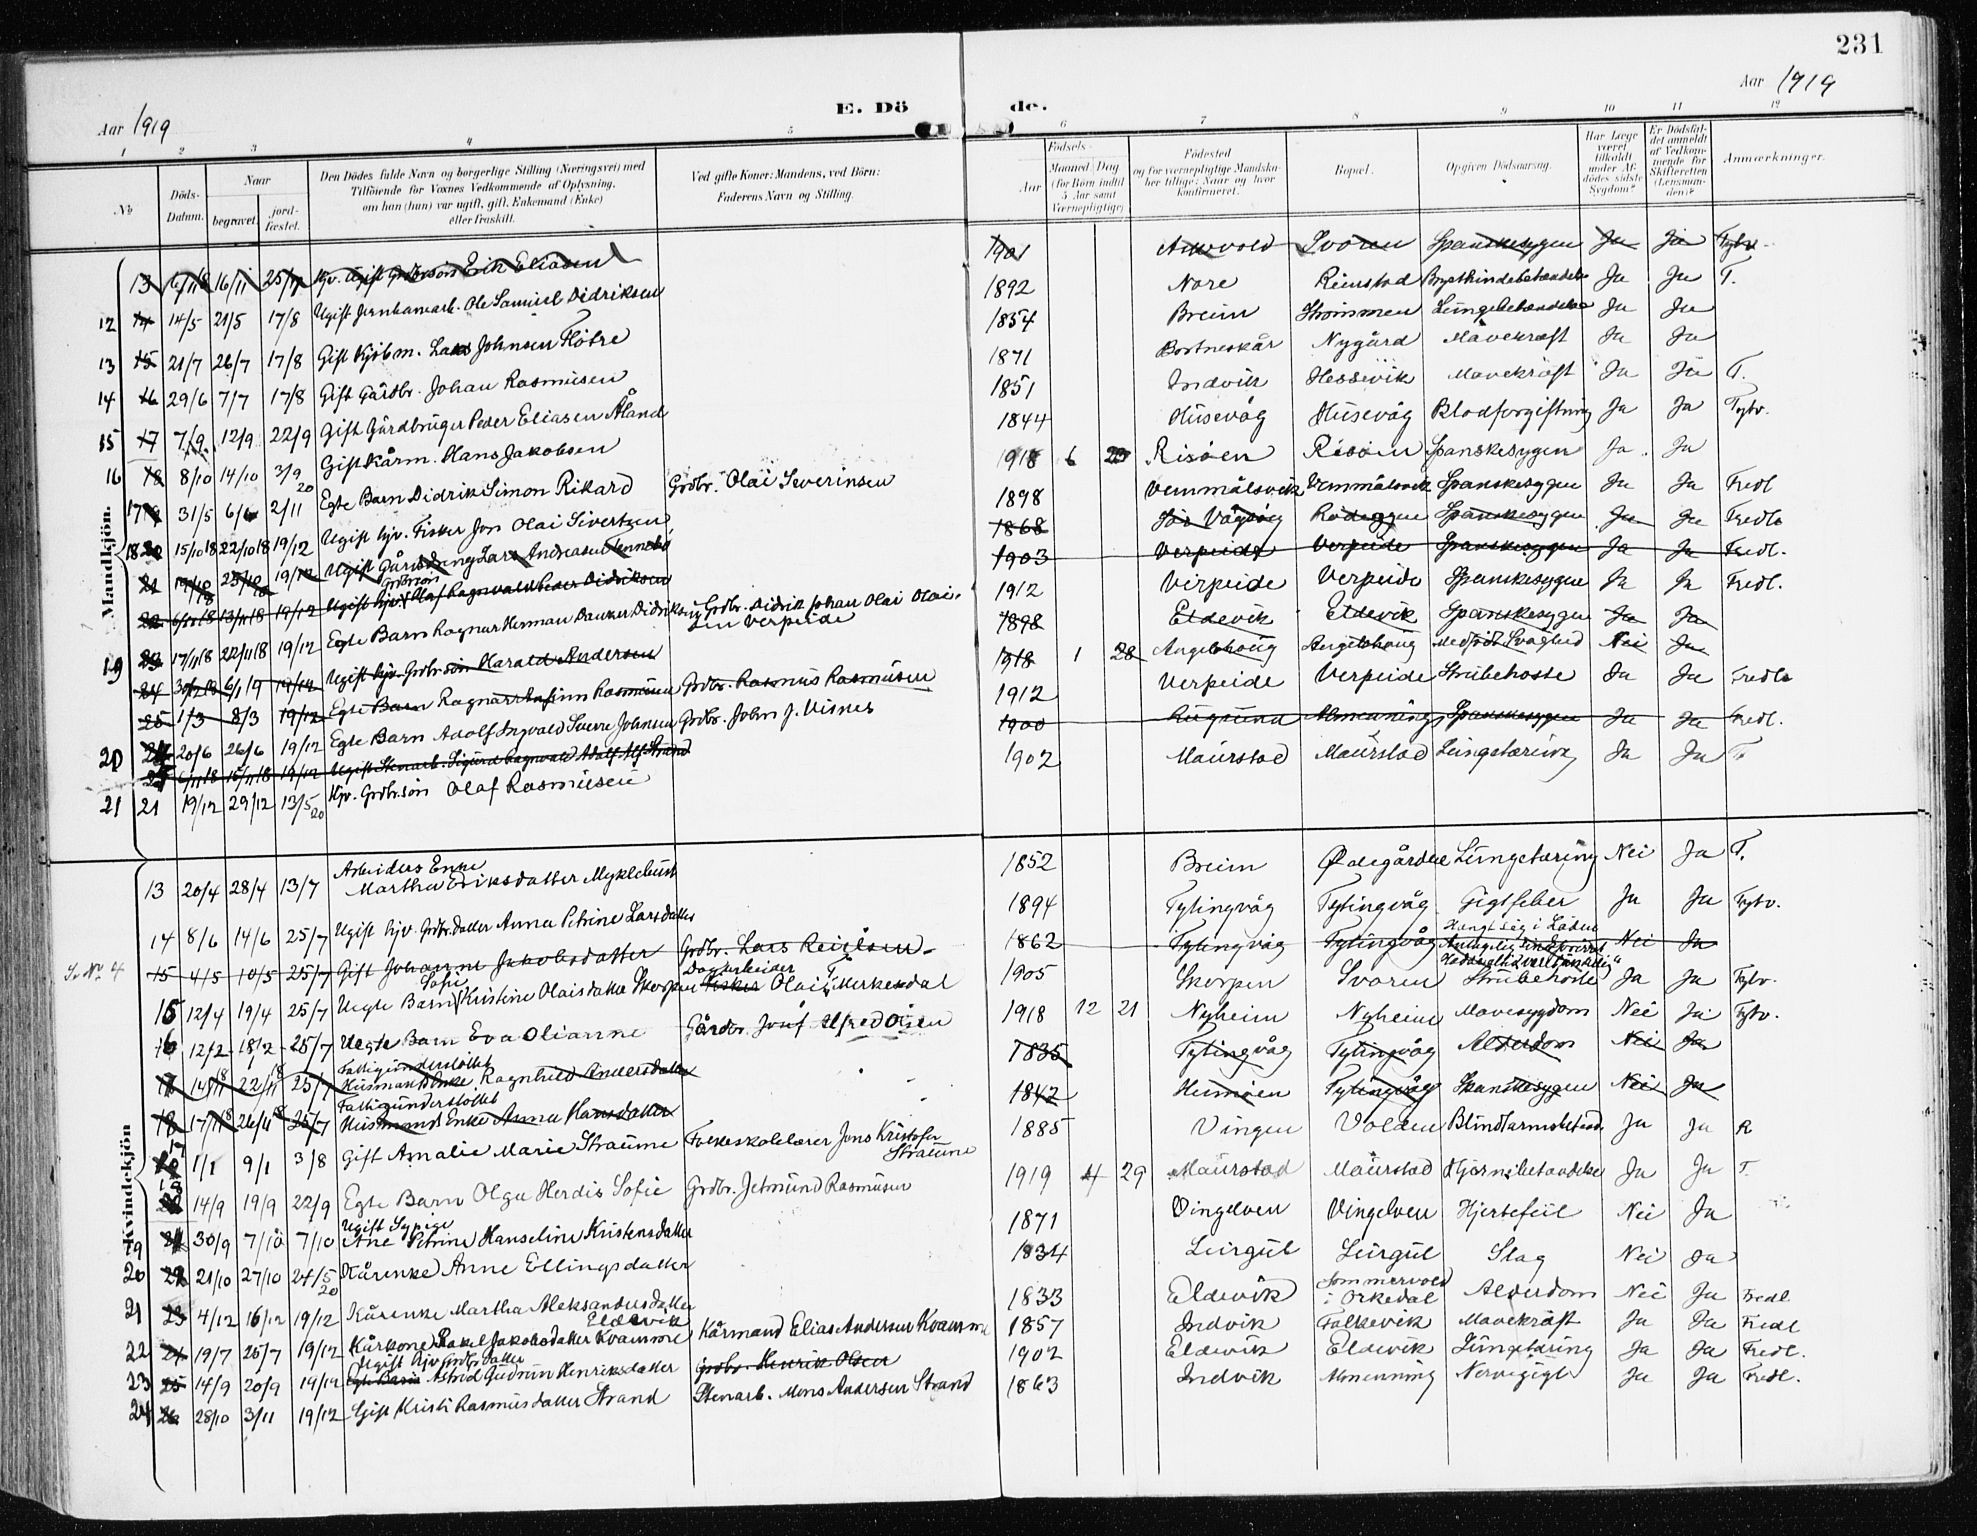 231
Aar 1919
E. Dö de.
Aar 1919
1 2 3 4 5 6 7 8 9 10 11 12
No
Döds-Datum.
Naar
begravet.
jord-fæstet.
Den Dödes fulde Navn og borgerlige Stilling (Næringsvei) med
Tilföiende for Voxnes Vedkommende af Oplysning,
om han (hun) var ugift, gift, Enkemand (Enke)
eller fraskilt.
Ved gifte Koner: Mandens, ved Börn:
Faderens Navn og Stilling.
Födsels-
Aar
Maaned Dag
(for Börn indtil
5 Aar samt
Værnepligtige)
Födested
og for værnepligtige Mandska-
ber tillige: Naar og hvor
konfirmeret.
Bopæl.
Opgiven Dödsaarsag.
Har Læge
været
tilkaldt
under Af-
dödes sidste
Sygdom?
Er Dödsfal-
det anmeldt
af Vedkom-
mende for
Skifteretten
(Lensman-
den)?
Anmærkninger.
Mandkjön.
13 16/11 16/11 25/ Kjv. Ugift Grdbrsön Erik Eliasen 1901 Askevold Ivoren Spanskesygen Ja Ja Fytv.
12 14 14/5 21/5 17/8 Ugift Jernbanearb. Ole Samuel Didriksen 1892 Nore Reinstad Brysthindebetændelse Ja Ja T.
13 15 21/7 26/7 17/8 Gift Kjöbm. Lars Johnsen Flötre 1854 Breim Strömmen Lungebetændelse Ja Ja
14 16 29/6 7/7 17/8 Gift Gårdbr. Johan Rasmusen 1871 Bortneskår Nygård Mavekræft Ja Ja
15 17 7/9 12/9 22/9 Gift Gårdbruger Peder Eliasen Åland 1851 Indvik Hessevik Mavekræft Ja Ja T.
16 18 8/10 14/10 3/9 20 Gift Kårm. Hans Jakobsen 1844 Husevåg Husevåg Blodforgiftning Ja Ja Fytv.
17 19 31/5 6/6 2/11 Egte Barn Didrik Simon Rikard Grdbr. Olai Severinsen 1918 6 23 Risöen Risöen Spanskesygen Ja Ja
18 20 15/10 18 22/10 18 19/12 Ugift kjv. Fisker Jon Olai Sivertsen 1898 Vemmålsvik Vemmålsvik Spanskesygen Ja Ja Fredl
21 19/10 18 25/10 18 19/12 Ugift Gårdsdreng Lars Andreasen Tennebö 1868 Sör Vågsöy Rödeggen Spanskesygen Ja Ja Fredl.
22 6/11 18 13/11 18 19/12 Ugift kjv. Grdbrsön Olaf Ragnvald Peder Didriksen 1903 Verpeide Verpeide Spanskesygen Ja Ja Fredl.
19 23 17/11 18 22/11 18 19/12 Egte Barn Ragnar Herman Didriksen Grdbr. Didrik Johan Olai Olai-
sen Verpeide 1912 Verpeide Verpeide Spanskesygen Ja Ja Fredl.
24 30/12 18 6/1 19 19/12 Ugift kjv. Grdbr. sön Harald Andersen 1898 Eldevik Eldevik Spanskesygen Ja Ja
25 1/3 8/3 19/12 Egte Barn Ragnar Rasmusen Grdbr. Rasmus Rasmusen 1918 1 28 Angelshaug Angelshaug Medfödt Svaghed Nei Ja
20 20/6 26/6 19/12 Egte Barn Adolf Ingvald Sverre Johnsen Grdbr. John J. Visnes 1912 Verpeide Verpeide Strubehoste Ja Ja Fredl.
6/11 18 15/11 18 19/12 Ugift Stenarb. Sigurd Ragnvald Adolf Alf Strand 1900 Rugsund Almenning Spanskesygen Ja Ja Fredl.
21 21 19/12 29/12 13/5 20 Kjv. Grdbr.sön Olaf Rasmusen 1902 Maurstad Maurstad Lungetæring Ja Ja T.
Kvindekjön
13 20/4 28/4 13/7 Arbeiders Enke
Martha Eriksdatter Myklebust 1852 Breim Ødegården Lungetæring Nei Ja T.
14 8/6 14/6 25/7 Ugift kjv. Grdbr.datter Anna Petrine Larsdatter 1894 Fytingvåg Fytingvåg Gigtfeber Ja Ja Fytv.
Se No. 4 15 4/5 10/5 25/7 Gift Johanne Jakobsdatter Grdbr. Lars Reielsen 1862 Fytingvåg Fytingvåg Hængt sig i Laden Nei Ja
15 12/4 19/4 25/7 Uegte Barn Sofie Kristine Olaisdatter Skorpen Dagarbeider Olai Merkesdal 1905 Skorpen Ivoren Strubehoste Ja Ja Fytv.
16 12/2 18/2 25/7 Uegte Barn Eva Olianne Gårdbr. Josef Alfred Olsen 1918 12 21 Nyheim Nyheim Mavesygdom Nei Ja Fytv.
17 14/11 18 22/11 18 25/7 Fattigunderstöttet
Husmands Enke Ragnhild Andersdatter 1835 Fytingvåg Fytingvåg Alderdom Nei Ja
18 17/11 18 26/11 18 25/7 Fattigunderstöttet
Husmands Enke Anna Hansdatter 1842 Husmöen Fytingvåg Spanskesygen Nei Ja
17 1/1 9/1 3/8 Gift Amalie Marie Straume Folkeskolelærer Jens Kristofer
Straume 1885 Vingen Volden Blindtarmsbetænd. Ja Ja R
18 20 14/9 19/9 22/9 Egte Barn Olga Herdis Sofie Grdbr. Jetmund Rasmusen 1919 4 29 Maurstad Maurstad Hjernebetændelse Ja Ja T.
19 21 30/9 7/10 7/10 Ugift Sypige
Ane Petrine Hanseline Kristensdatter 1871 Vingelven Vingelven Hjertefeil Nei Ja
20 22 21/10 27/10 24/5 20 Kårenke Anne Ellingsdatter 1834 Leirgul Leirgul Slag Nei Ja
21 23 4/12 16/12 19/12 Kårenke Martha Aleksandersdatter
Eldevik 1833 Eldevik Sommervold
i Orkedal Alderdom Nei Ja Fredl
22 24 19/7 25/7 19/12 Kårkone Rakel Jakobsdatter Kvamme Kårmand Elias Andersen Kvamme 1857 Indvik Falkevik Mavekræft Ja Ja Fredl
23 25 14/9 20/9 19/12 Ugift kjv. grdbr.datter
Egte Barn Astrid Gudrun Henriksdatter Grdbr. Henrik Olsen 1902 Eldevik Eldevik Lungetæring Ja Ja Fredl.
24 26 28/10 3/11 19/12 Gift Kristi Rasmusdatter Strand Stenarb. Mons Andersen Strand 1863 Indvik Almenning Nervegigt Ja Ja Fredl.